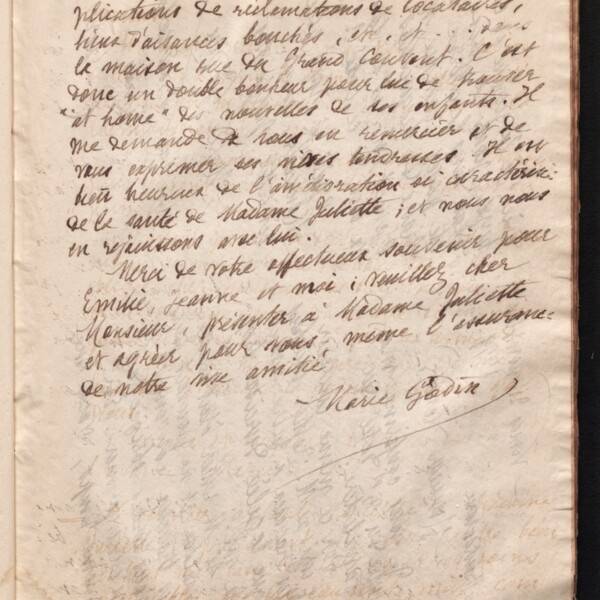 plications de réclamations de locataires,
lieux d'aisances bouchés, et, et ... dans
la maison rue du Grand Couvent. C'est
donc un double bonheur pour lui de trouver
"at home" des nouvelles de ses enfants. Il
me demande de vous en remercier et de
vous exprimer ses vives tendresses. Il est
bien heureux de l'amélioration si caractérisée
de la santé de Madame Juliette ; et nous nous
en rejouissons avec lui.
Merci de votre affectueux souvenir pour
Emilie, Jeanne et moi ; veuillez, cher
Monsieur, présenter à Madame Juliette
et agréer pour vous-même l'assurance
de notre vive amitié
Marie Godin